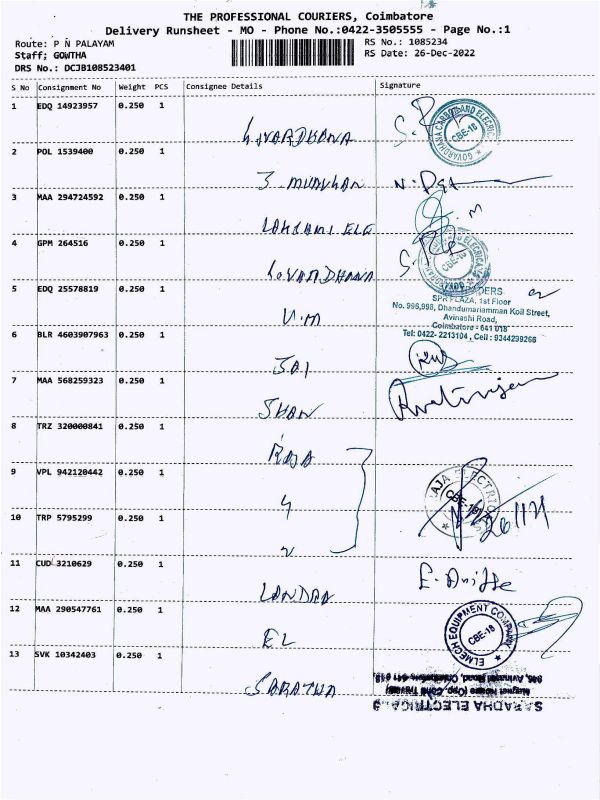 THE PROFESSIONAL COURIERS, Coimbatore
Delivery Runsheet - MO - Phone No.:0422-3505555 - Page No.:1
Route: P N PALAYAM
RS No.: 1085234
Staff; GOWTHA
RS Date: 26-Dec-2022
DRS No.: DCJB108523401
S No Consignment No Weight PCS Consignee Details Signature
1 EDQ 14923957 0.250 1
GOVARDHANA
GOVARDHANA CARBON AND ELECRICALS CBE-18
2 POL 1539400 0.250 1
3 MAA 294724592 0.250 1
LAKSAMI ELE
4 GPM 264516 0.250 1
GOVARDHANA
CBE-18
5 EDQ 25578819 0.250 1
V.M
SPR PLAZA, 1st Floor
No. 996,998, Dhandumariamman Koil Street,
Avinashi Road,
Coimbatore - 641 018
Tel: 0422- 2213104, Cell : 9344299266
6 BLR 4603907963 0.250 1
SAI
7 MAA 568259323 0.250 1
SHAN
8 TRZ 320000841 0.250 1
RAJA
9 VPL 942120442 0.250 1
RAJA ELECTRICALS CBE-18
10 TRP 5795299 0.250 1
11 CUD 3210629 0.250 1
12 MAA 290547761 0.250 1
EL
ELMECH EQUIPMENT COMPANY CBE-18
13 SVK 10342403 0.250 1
SARATHA
SARADHA ELECTRICALS